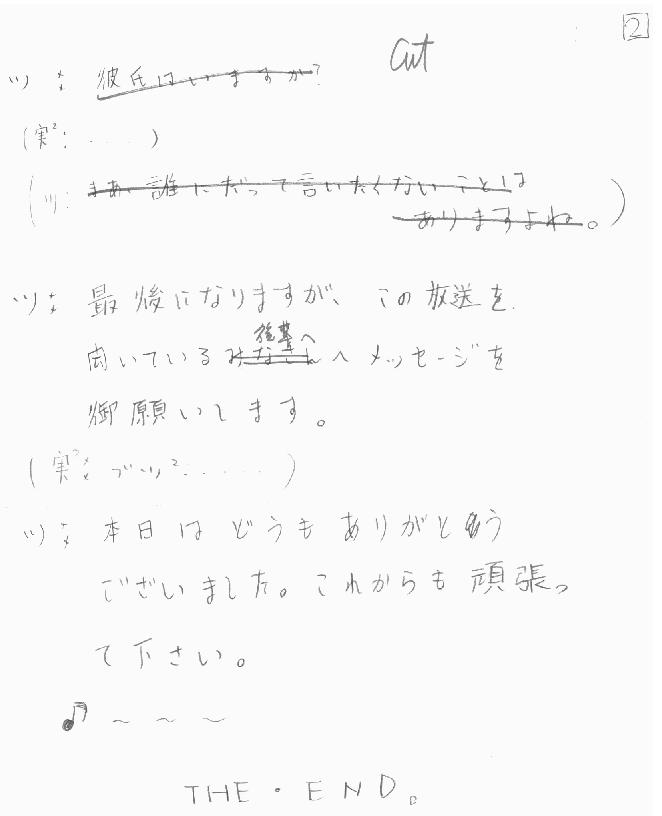 2
cut
ツ: 彼氏はいますか?
(実²: .....)
(ツ: まあ、誰にだって言いたくないことは
ありますよね。)
ツ: 最後になりますが、この放送を
後輩へ
聞いているみなさんへメッセージを
御願いします。
(実²: ブツ²: .....)
ツ: 本日はどうもありがとう
ございました。これからも頑張っ
て下さい。
♫ ~ ~ ~
THE・END。